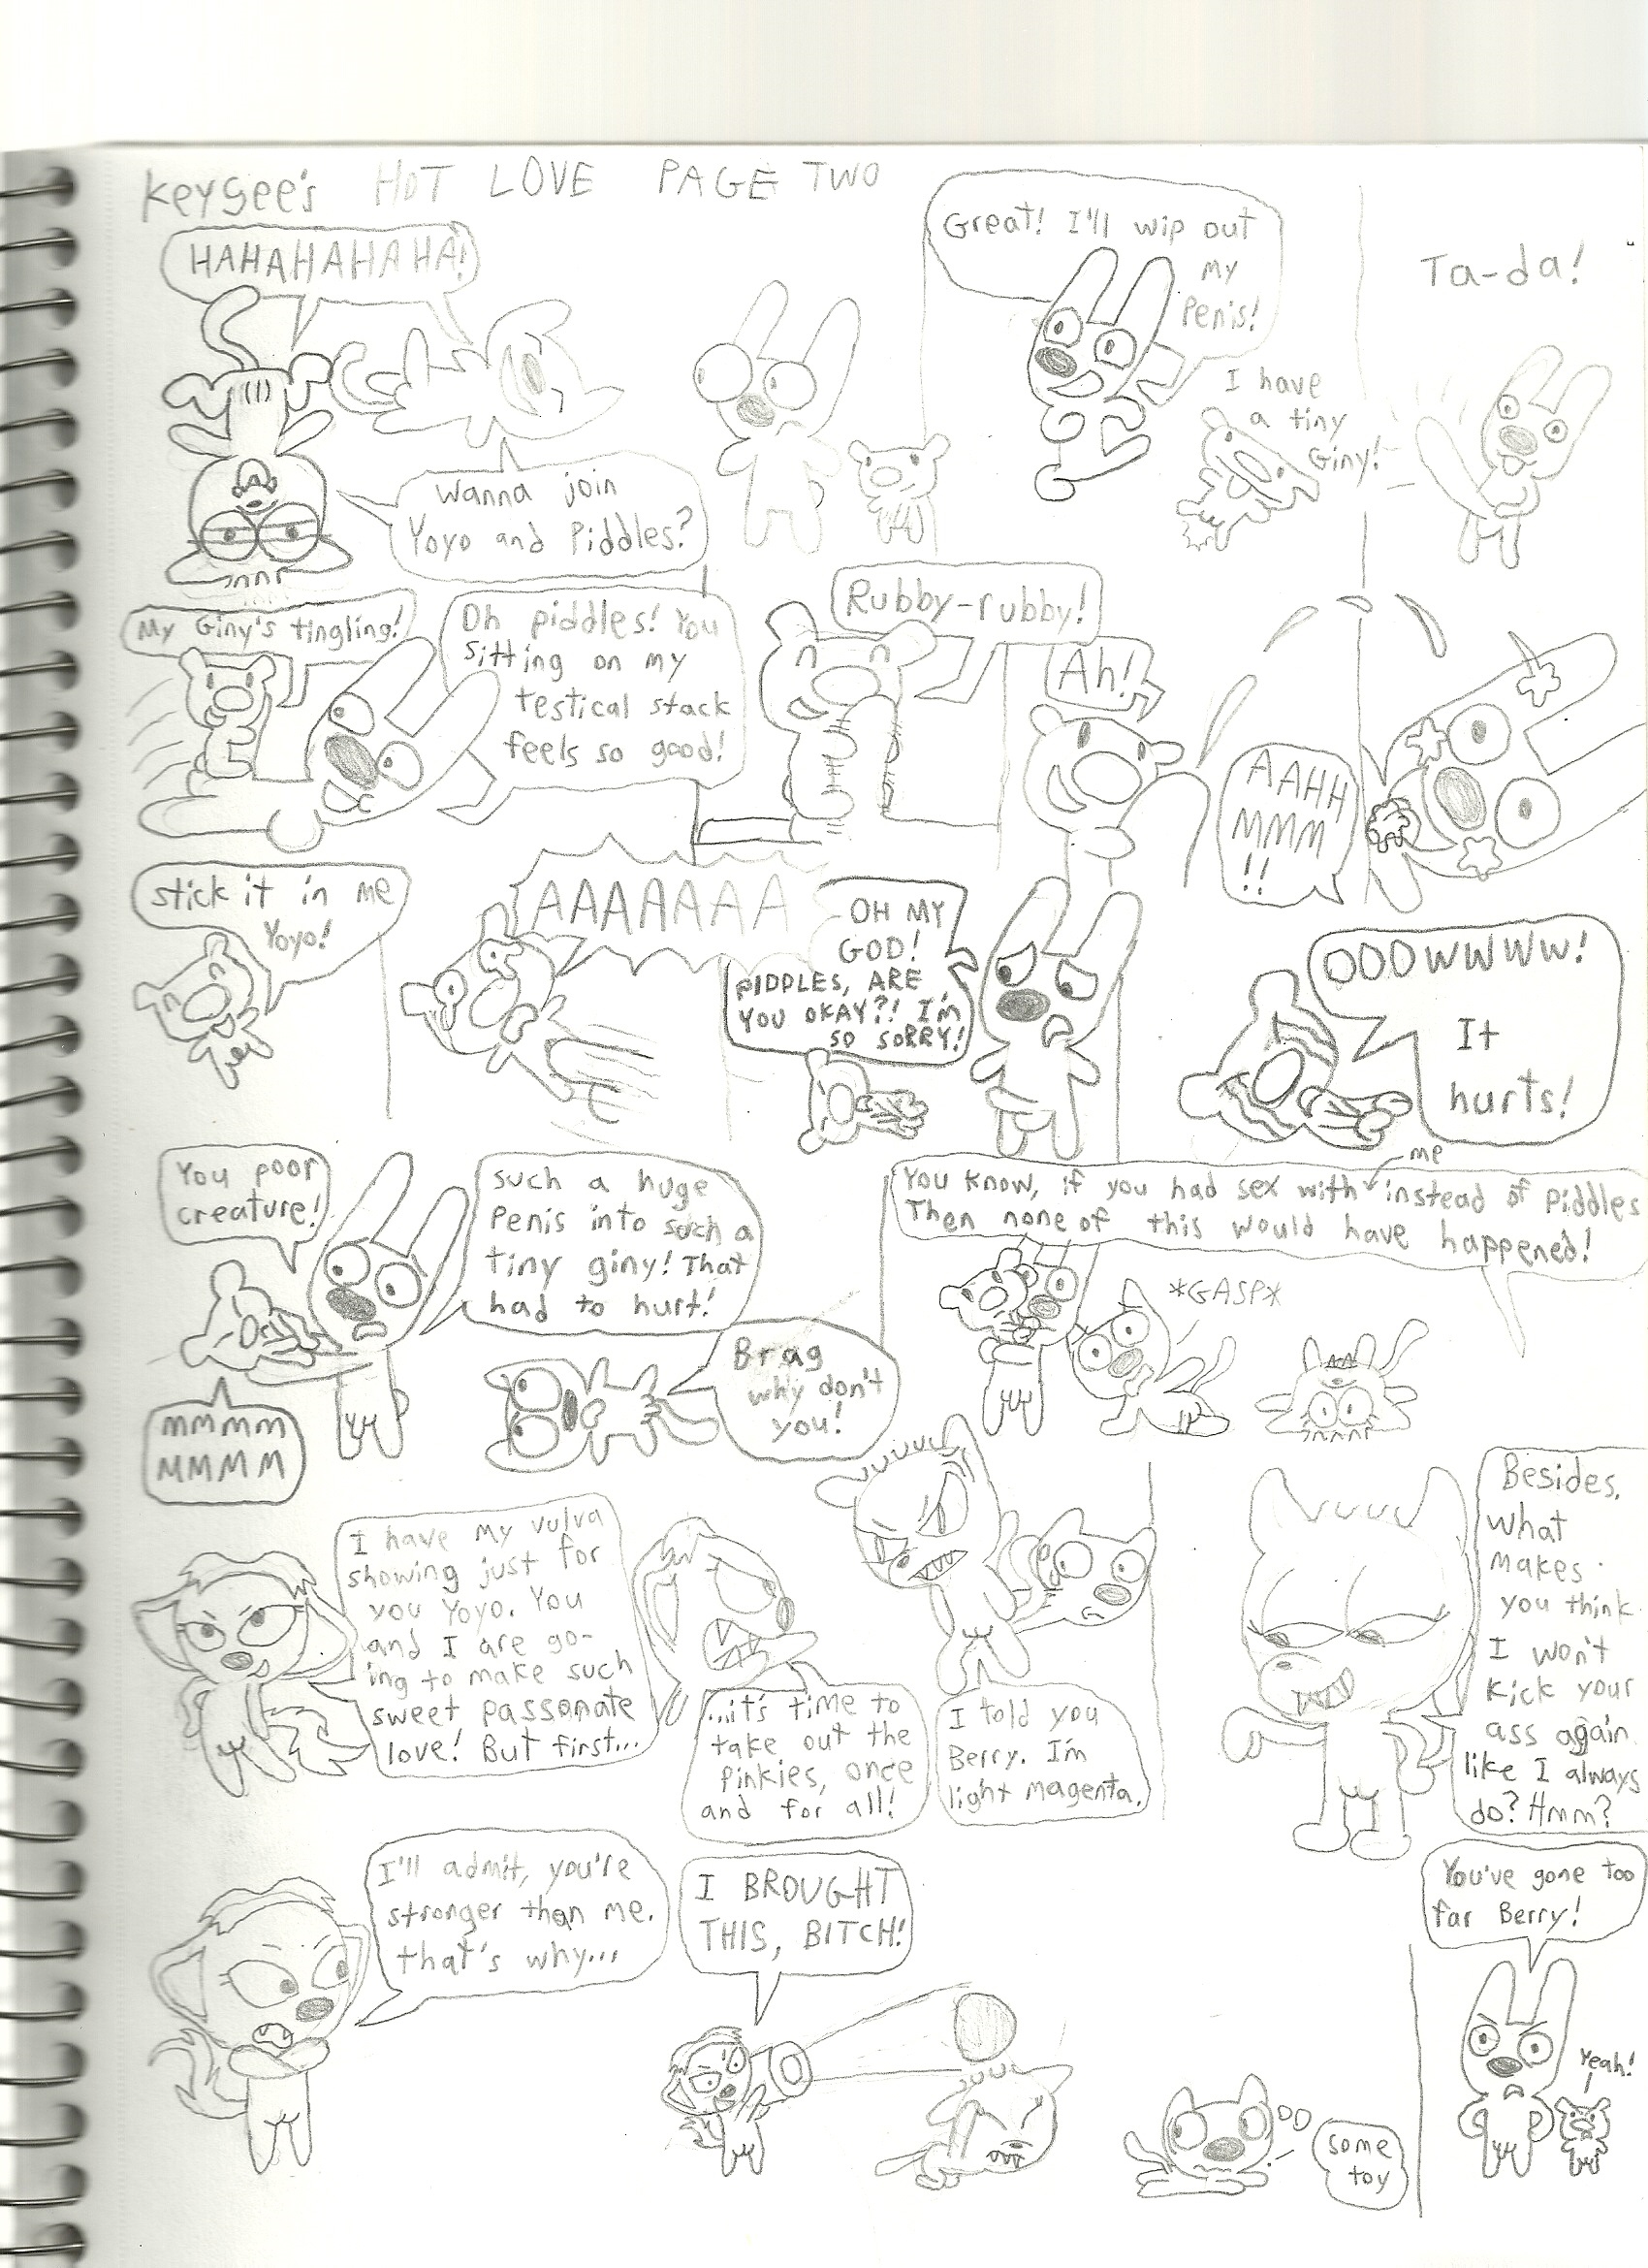 Keygee's HOT LOVE PAGE TWO
HAHAHAHAHA!
Wanna join
Yoyo and Piddles?
Great! I'll wip out
my
penis!
I have
a tiny
Giny!
Ta-da!
My Giny's tingling!
Oh piddles! You
sitting on my
testical stack
feels so good!
Rubby-rubby!
Ah!
AAHH
MMM
!!
stick it in me
Yoyo!
AAAAAAA
OH MY
GOD!
PIDDLES, ARE
YOU OKAY?! I'm
SO SORRY!
OOOWWWW!
It
hurts!
You poor
creature!
MMMM
MMMM
such a huge
Penis into such a
tiny giny! That
had to hurt!
Brag
why don't
you!
me
You know, if you had sex with instead of piddles
Then none of this would have happened!
*GASP*
I have my vulva
showing just for
you Yoyo. You
and I are go-
ing to make such
sweet passonate
love! But first...
...it's time to
take out the
pinkies, once
and for all!
I told you
Berry. I'm
light magenta.
Besides,
what
makes
you think
I won't
kick your
ass again
like I always
do? Hmm?
I'll admit, you're
stronger than me.
that's why...
I BROUGHT
THIS, BITCH!
some
toy
You've gone too
far Berry!
Yeah!